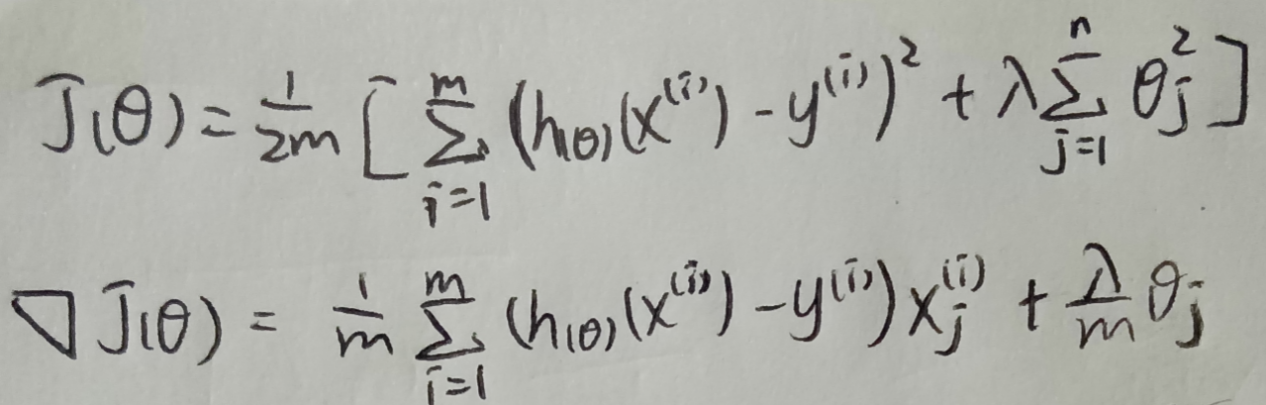 J(θ) = \frac{1}{2m} [ \sum_{i=1}^{m} (h_{(θ)}(x^{(i)}) - y^{(i)})^2 + λ \sum_{j=1}^{n} θ_j^2 ]
∇J(θ) = \frac{1}{m} \sum_{i=1}^{m} (h_{(θ)}(x^{(i)}) - y^{(i)}) x_j^{(i)} + \frac{λ}{m} θ_j